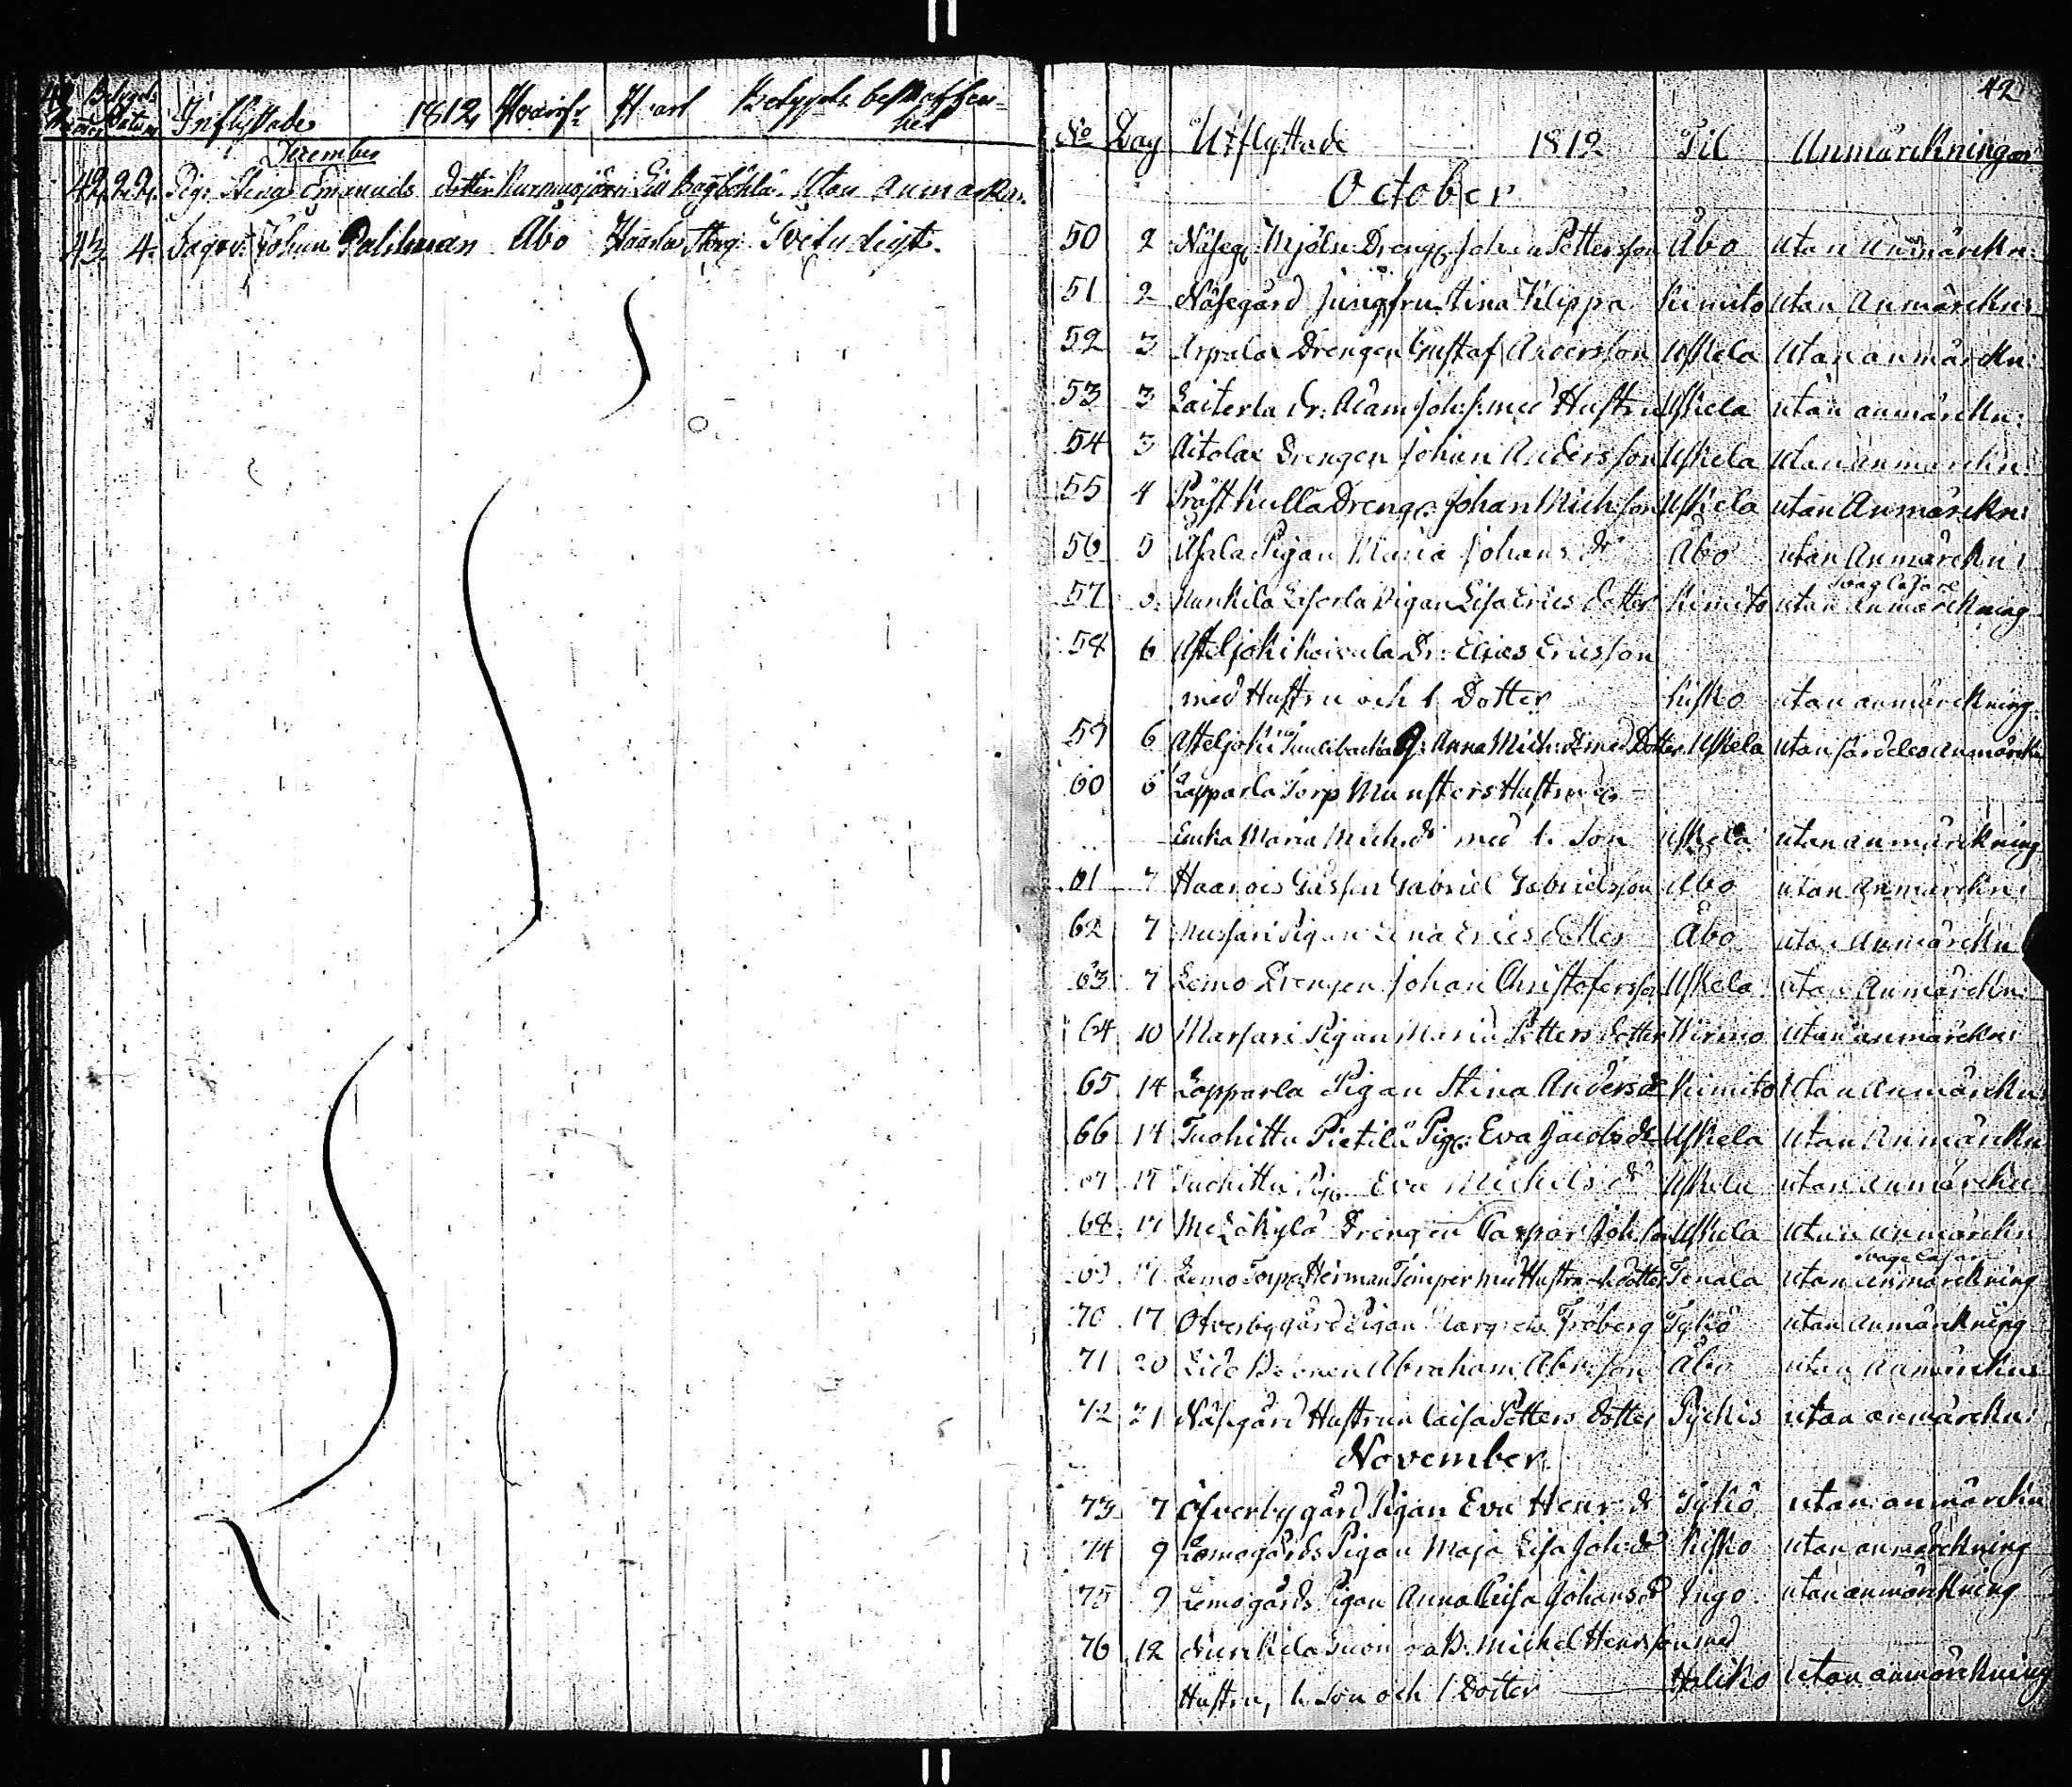 Inflyttade 1812, Hvarifr: Hvart Betygets beskaffen-
het
December
42. 29. Pig: Stina Emanuels dotter Nurmigjörvi Lill Bagböhla. Utan Anmärkn.
43. 4. Johan Dahlman Åbo Tvetydigt.
42
No Dag Utflyttade 1812 Til Anmärckningar
October
50 2 Näseg: Mjöln Dreng: Johan Pettersson Åbo utan anmärckn:
51 2 Näsegård Jungfru Stina Filippa Kimito utan Anmärckn:
52 3 Arpalax Drengen Gustaf Andersson Uskela utan anmärckn:
53 3 Laiterla Dr: Adam Joh:s: med Hustru Uskela utan anmärckn:
54 3 Aitolax Drengen Johan Andersson Uskela utan anmärckn:
55 4 Prästkulla Dreng: Johan Mich:son Uskela utan Anmärckn:
56 5 Pigan Maria Johans dr Åbo utan Anmärckn:
svag läsare
57 Pigan Lisa Erics dotter Kimito utan anmärckning
58 6 Asteljoki Dr: Elias Ericsson
med Hustru och 1 Dotter Kisko utan anmärckning
59 6 Asteljoki Anna Mich: dr med Dotter Uskela utan särdeles anmärckn
60 6 Lapparla Torp Munsters Hustru
Maria Mich:dr med 1. Son Uskela utan anmärckning
61 7 Gabriel Gabrielsson Åbo utan Anmärckn:
62 7 Pigan Lena Erics dotter Åbo utan Anmärckn
63 7 Lemo Drengen Johan Christofersson Uskela utan Anmärckn:
64 10 Marsari Pigan Maria Petters dotter Wirmo utan anmärckn:
65 14 Lapparla Pigan Stina Anders dr Kimito Utan Anmärckn:
66 14 Tuohittu Pietilä Pig: Eva Jacobs dr Uskela utan Anmärckn
67 17 Tuohittu Pig: Eva Michels dr Uskela utan anmärckn
68 17 Melläkylä Drengen Caspar Joh:son Uskela utan anmärckn
svage läsare
69 17 Lemo Torp: Herman Timper med Hustru och dotter Tenala utan anmärckning
70 17 Öfverbygård Pigan Margreta Fröberg Tykö utan Anmärckning
71 20 Abraham Abr:son Åbo utan anmärckn:
72 21 Näsegård Hustrun Caisa Petters dotter Pyckis utan anmärckn:
November
73 7 Öfverby gård Pigan Eva Henr: dr Tykö utan anmärckn
74 9 Lemogårds Pigan Maja Lisa Joh:dr Kisko utan anmärckning
75 9 Lemogårds Pigan Anna Johans dr Ingo utan anmärckning
76 12 Michel Henrsson med
Hustru, 1. Son och 1 Dotter Haliko utan anmärckning